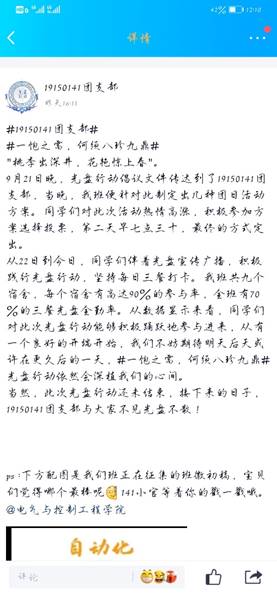 42% 12:10
详情
19150141团支部
昨天16:11
#19150141团支部#
#一饱之需,何须八珍九鼎#
"桃李出深井,花艳惊上春"。
9月21日晚,光盘行动倡议文件传达到了19150141团
支部,当晚,我班便针对此制定出几种团日活动
方案。同学们对此次活动热情高涨,积极参加方
案选择投票,第二天早七点三十,最终的方式定
出。
从22日到今日,同学们伴着光盘宣传广播,积极
践行光盘行动,坚持每日三餐打卡。我班共九个
宿舍,每个宿舍有高达90%的参与率,全班有70
%的三餐光盘全勤率。从数据显示来看,同学们
对此次光盘行动能够积极踊跃地参与进来,从有
一个良好的开端开始,我们不妨期待明天后天或
许在更久后的一天,#一饱之需,何须八珍九鼎#
光盘行动依然会深植我们的心间。
当然,此次光盘行动还未结束,接下来的日子,
19150141团支部与大家不见光盘不散!
ps:下方配图是我们班正在征集的班徽初稿,宝贝
们觉得哪个最棒呢 141小官等着你的戳一戳哦。
@电气与控制工程学院
自动化
评论